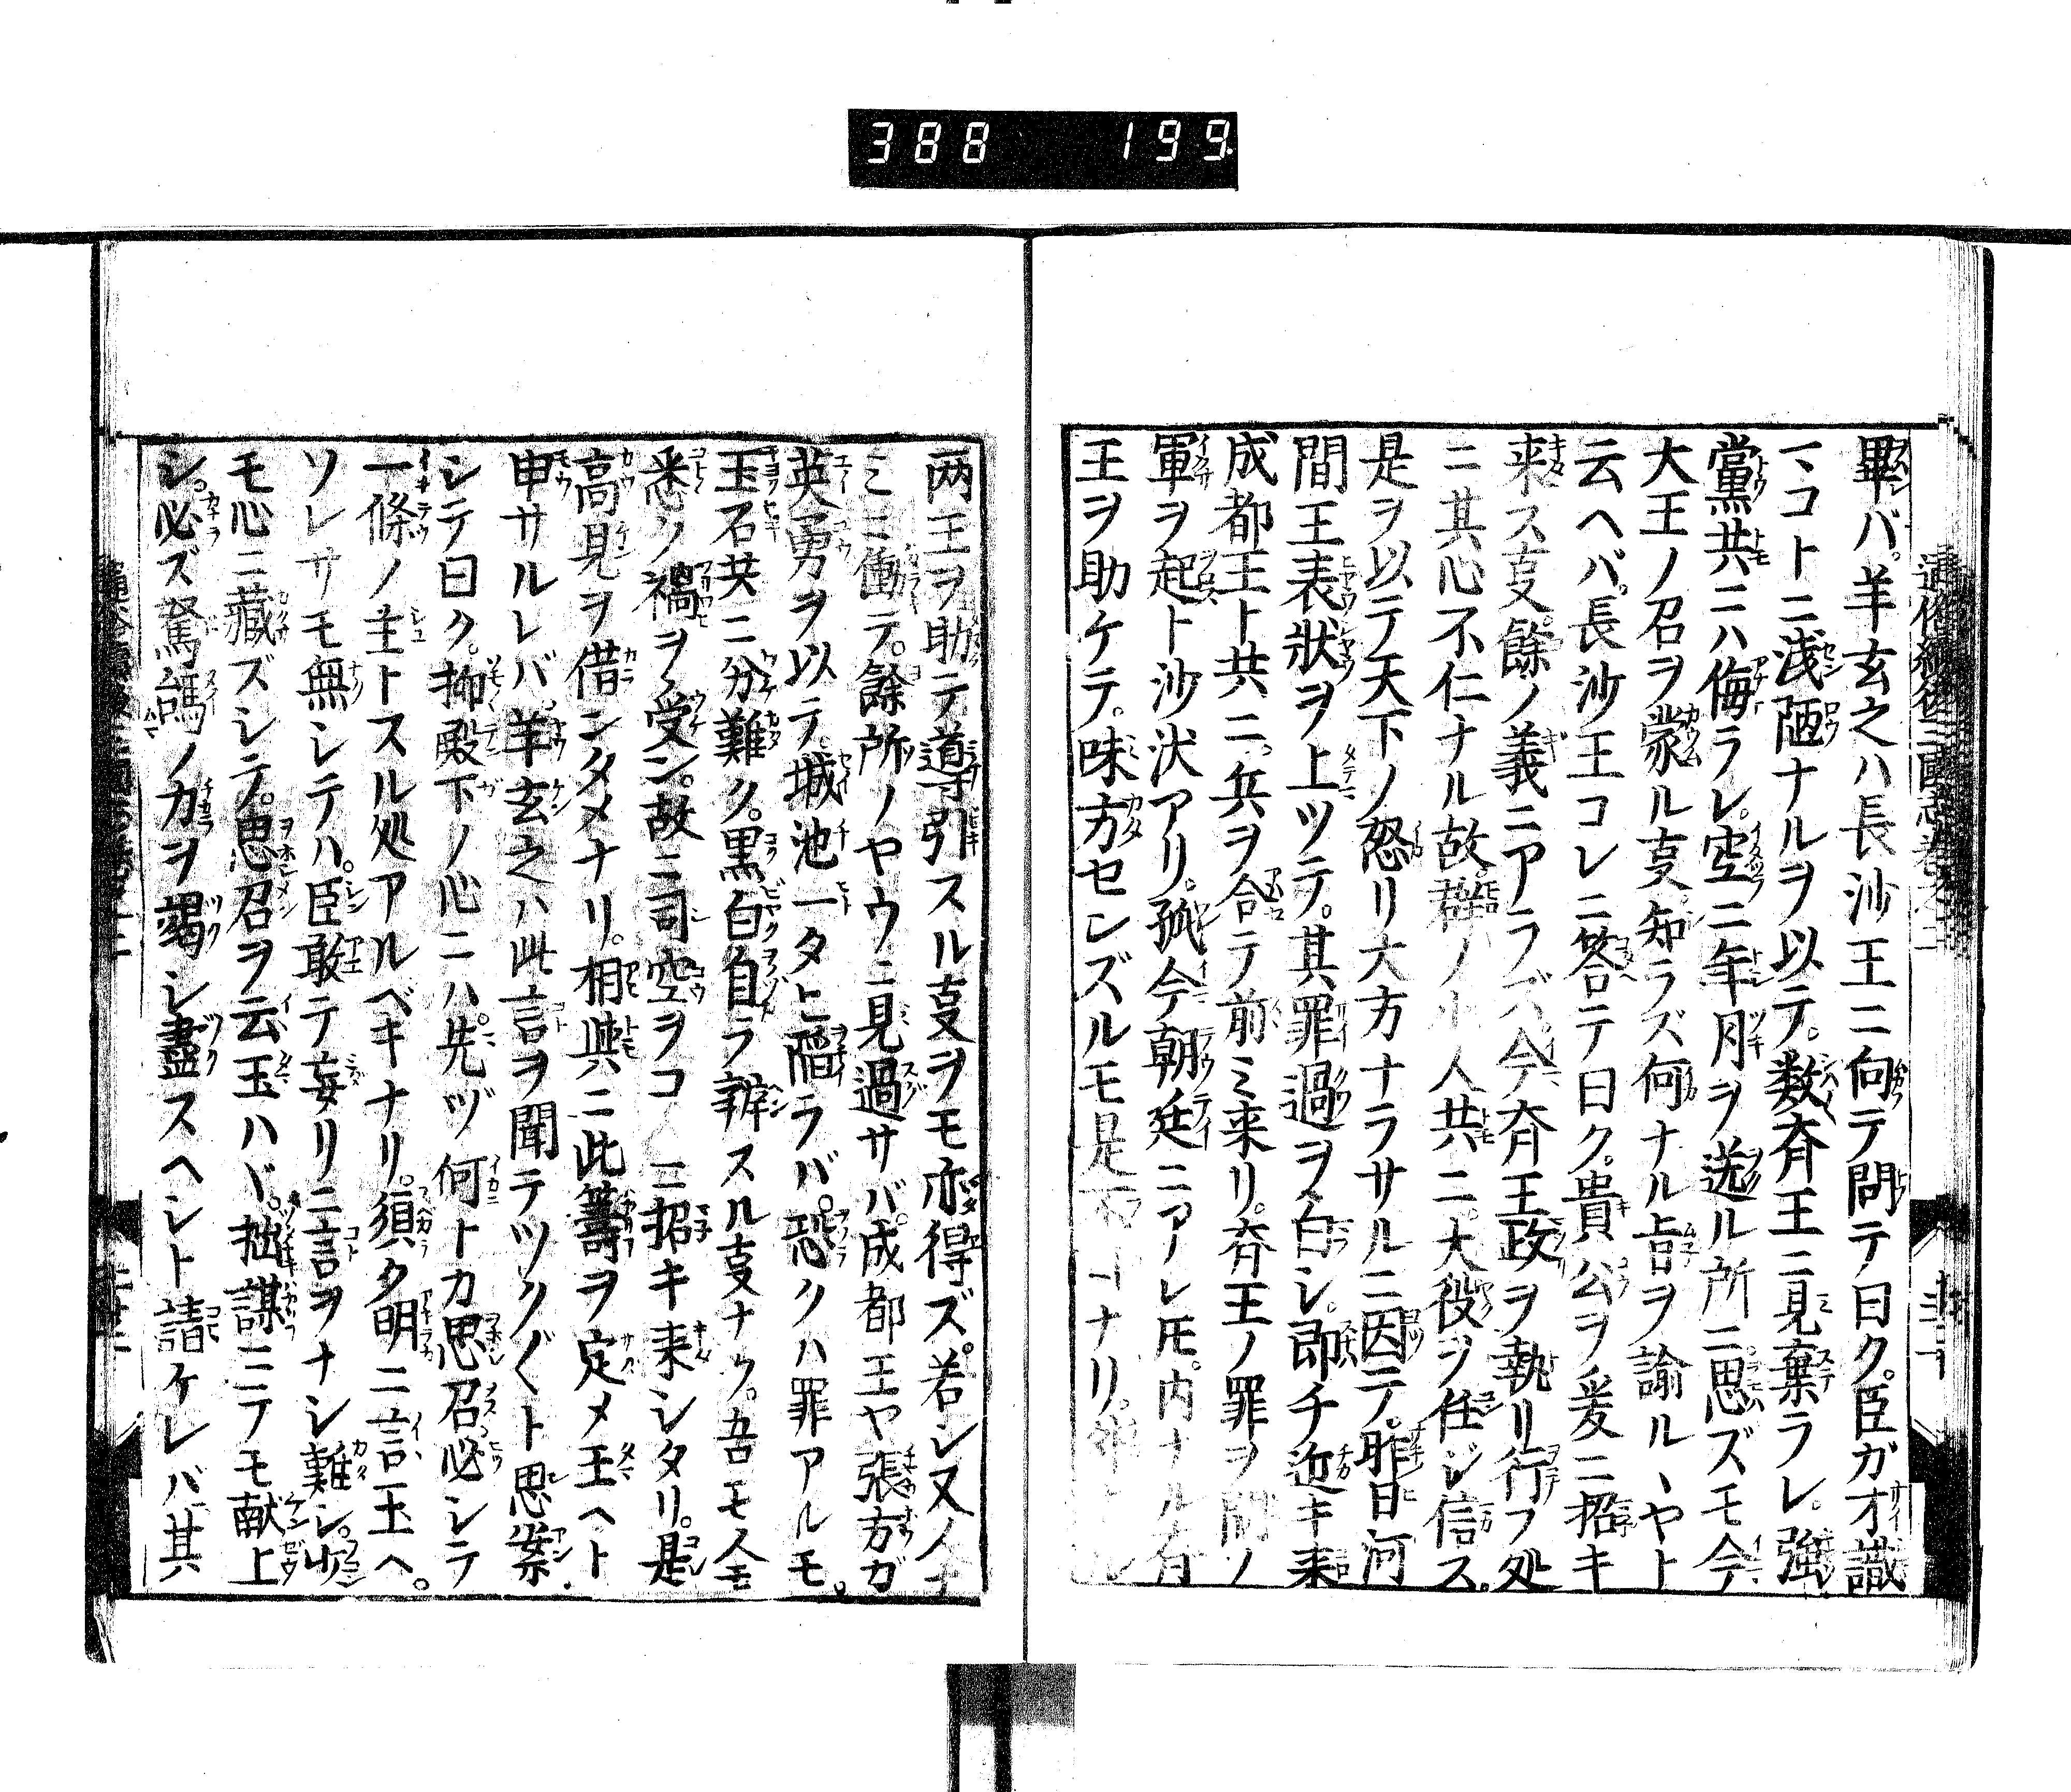 388 199
畢バ。羊玄之ハ長沙王ニ向テ問テ曰ク。臣ガ才識
マコトニ浅陋ナルヲ以テ。数斉王ニ見棄ラレ。強
黨共ニハ侮ラレ。空ニ年月ヲ送ル所ニ思ズモ今
大王ノ召ヲ蒙ル㕝。知ラズ何ナル旨ヲ諭ルヽヤト
云ヘバ。長沙王コレニ答テ曰ク。貴公ヲ爰ニ招キ
来ス㕝餘ノ義ニアラズ今斉王政ヲ執リ行フ処
ニ其心不仁ナル故。群ノ小人共ニ。大役ヲ任ジ信ス。
是ヲ以テ天下ノ怒リ大方ナラサルニ因テ。昨日河
間王表狀ヲ上ツテ。其罪過ヲ白シ。即チ近キ来
成都王ト共ニ。兵ヲ合テ前ミ来リ。斉王ノ罪ヲ問ノ
軍ヲ起ト沙汰アリ。孤今朝廷ニアレ𪜈。内ナル
王ヲ助ケテ。味方センズルモ是 ナリ。
两王ヲ助テ導引スル㕝ヲモ亦得ズ。若シ又
ミニ働テ。餘所ノヤウニ見過サバ。成都王ヤ張方ガ
英勇ヲ以テ。城池一タヒ陷ラバ。恐クハ罪アルモ。
玉石共ニ分難ク。黒白自ラ辨スル㕝ナク。吾モ人モ
悉ク禍ヲ受ン。故ニ司空ヲコヽニ招キ来シタリ。是
高見ヲ借ンタメナリ。相與ニ此籌ヲ定メ王ヘト
申サルレバ。羊玄之ハ此言ヲ聞テツク〴〵ト思案
シテ曰ク。抑殿下ノ心ニハ。先ヅ何トカ思召必シテ
一條ノ主トスル処アルベキナリ。須ク明ニ言玉ヘ。
ソレサモ無シテハ。臣敢テ妄リニ言ヲナシ難シ。少
モ心ニ藏ズシテ。思召ヲ云玉ハバ。拙謀ニテモ献上
シ。必ズ駑 ノ力ヲ竭シ盡スヘシト請ケレバ其